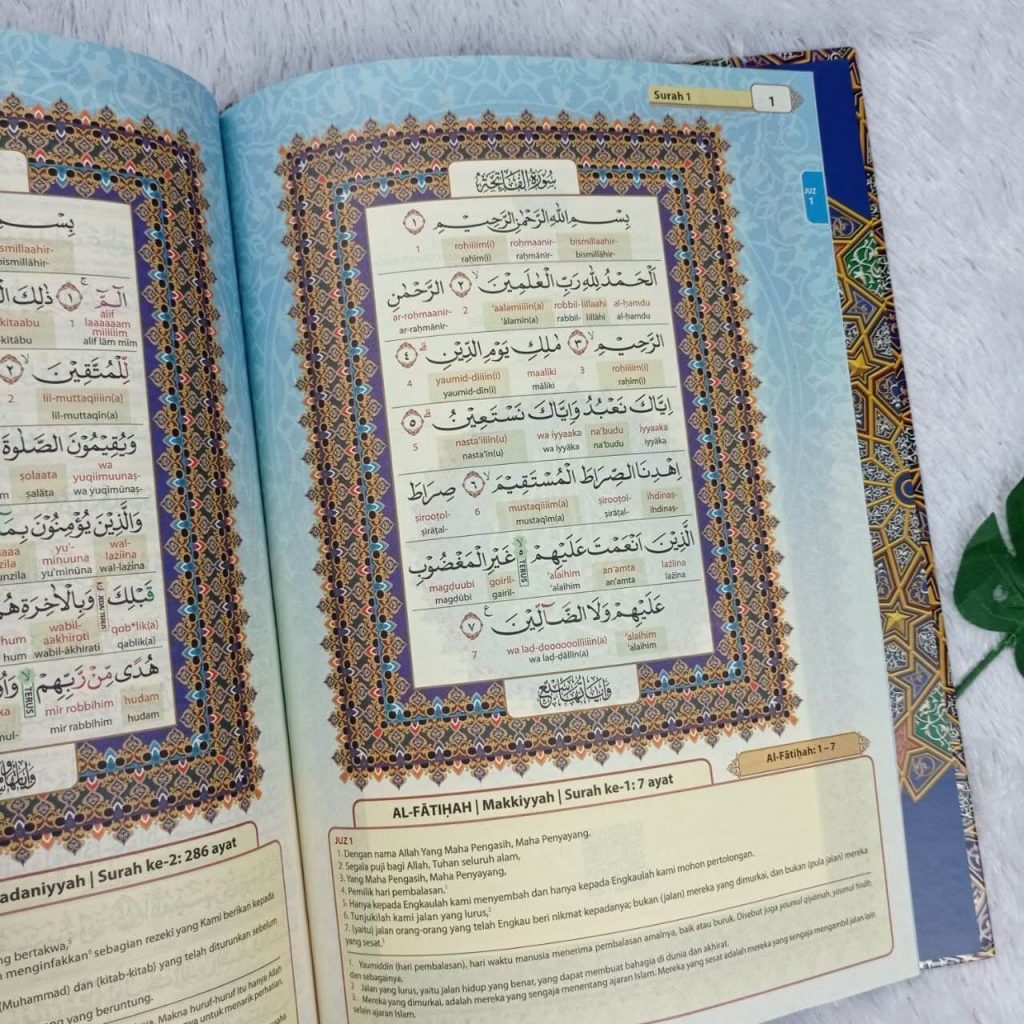 Surah 1
1
JUZ
1
سورة الفاتحة
بِسْمِ اللّٰهِ الرَّحْمٰنِ الرَّحِيْمِ ۝١
bismillaahir- roḥmaanir- roḥiiiim(i) 1
bismillāhir- raḥmānir- raḥīm(i)
اَلْحَمْدُ لِلّٰهِ رَبِّ الْعٰلَمِيْنَۙ ۝٢ الرَّحْمٰنِ
al-ḥamdu lillaahi robbil- 'aalamiiiin(a) 2 ar-roḥmaanir-
al-ḥamdu lillāhi rabbil- 'ālamīn(a) ar-raḥmānir-
الرَّحِيْمِۙ ۝٣ مٰلِكِ يَوْمِ الدِّيْنِۗ ۝٤
roḥiiiim(i) 3 maaliki yaumid-diiiin(i) 4
raḥīm(i) māliki yaumid-dīn(i)
اِيَّاكَ نَعْبُدُ وَاِيَّاكَ نَسْتَعِيْنُۗ ۝٥
iyyaaka na'budu wa iyyaaka nasta'iiiin(u) 5
iyyāka na'budu wa iyyāka nasta'īn(u)
اِهْدِنَا الصِّرَاطَ الْمُسْتَقِيْمَۙ ۝٦ صِرَاطَ
ihdinaṣ- ṣirooṭol- mustaqiiiim(a) 6 ṣirooṭol-
ihdinaṣ- ṣirāṭal- mustaqīm(a) ṣirāṭal-
الَّذِيْنَ اَنْعَمْتَ عَلَيْهِمْ ەۙ TERUS غَيْرِ الْمَغْضُوْبِ
lażiina an'amta 'alaihim goiril- magḍuubi
lażīna an'amta 'alaihim gairil- magḍūbi
عَلَيْهِمْ وَلَا الضَّاۤلِّيْنَ ࣖ ۝٧
'alaihim wa laḍ-ḍoooooolliiiin(a) 7
'alaihim wa laḍ-ḍāllīn(a)
وَاٰيَاتُهَا سَبْعٌ
Al-Fātiḥah: 1 – 7
AL-FĀTIḤAH | Makkiyyah | Surah ke-1: 7 ayat
JUZ 1
1. Dengan nama Allah Yang Maha Pengasih, Maha Penyayang.
2. Segala puji bagi Allah, Tuhan seluruh alam,
3. Yang Maha Pengasih, Maha Penyayang,
4. Pemilik hari pembalasan.¹
5. Hanya kepada Engkaulah kami menyembah dan hanya kepada Engkaulah kami mohon pertolongan.
6. Tunjukilah kami jalan yang lurus,²
7. (yaitu) jalan orang-orang yang telah Engkau beri nikmat kepadanya; bukan (jalan) mereka yang dimurkai, dan bukan (pula jalan) mereka
yang sesat.³
1. Youmiddin (hari pembalasan), hari waktu manusia menerima pembalasan amalnya, baik atau buruk. Disebut juga youmul qiyāmah, youmul hisāb,
dan sebagainya.
2 Jalan yang lurus, yaitu jalan hidup yang benar, yang dapat membuat bahagia di dunia dan akhirat.
3. Mereka yang dimurkai, adalah mereka yang sengaja menentang ajaran Islam. Mereka yang sesat adalah mereka yang sengaja mengambil jalan lain
selain ajaran Islam.
بِسْـ
ismillaahir-
bismillāhir-
الۤمّۤ ۚ ۝١ ذٰلِكَ
alif
laaaaaam
miiiiiim 1 kitaabu
alif lām mīm kitābu
لِّلْمُتَّقِيْنَۙ ۝٢
lil-muttaqiiiin(a) 2
lil-muttaqīn(a)
وَيُقِيْمُوْنَ الصَّلٰوةَ
wa
yuqiimuunaṣ- ṣolaata
wa yuqīmūnaṣ- ṣalāta
وَالَّذِيْنَ يُؤْمِنُوْنَ بِمَآ
wal-
lażiina yu'-
minuuna
wal-lażīna yu'minūna unzila
قَبْلِكَ وَبِالْاٰخِرَةِ
qob*lik(a) wabil-
aakhiroti hum
qablik(a) wabil-ākhirati hum
هُدًى مِّنْ رَّبِّهِمْ ۙ TERUS
hudam mir robbihim
hudam mir rabbihim
adaniyyah | Surah ke-2: 286 ayat
ng bertakwa,⁵
menginfakkan⁶ sebagian rezeki yang Kami berikan kepada
(Muhammad) dan (kitab-kitab) yang telah diturunkan sebelum
yang beruntung.
Makna huruf-huruf itu hanya Allah
untuk menarik perhatian.